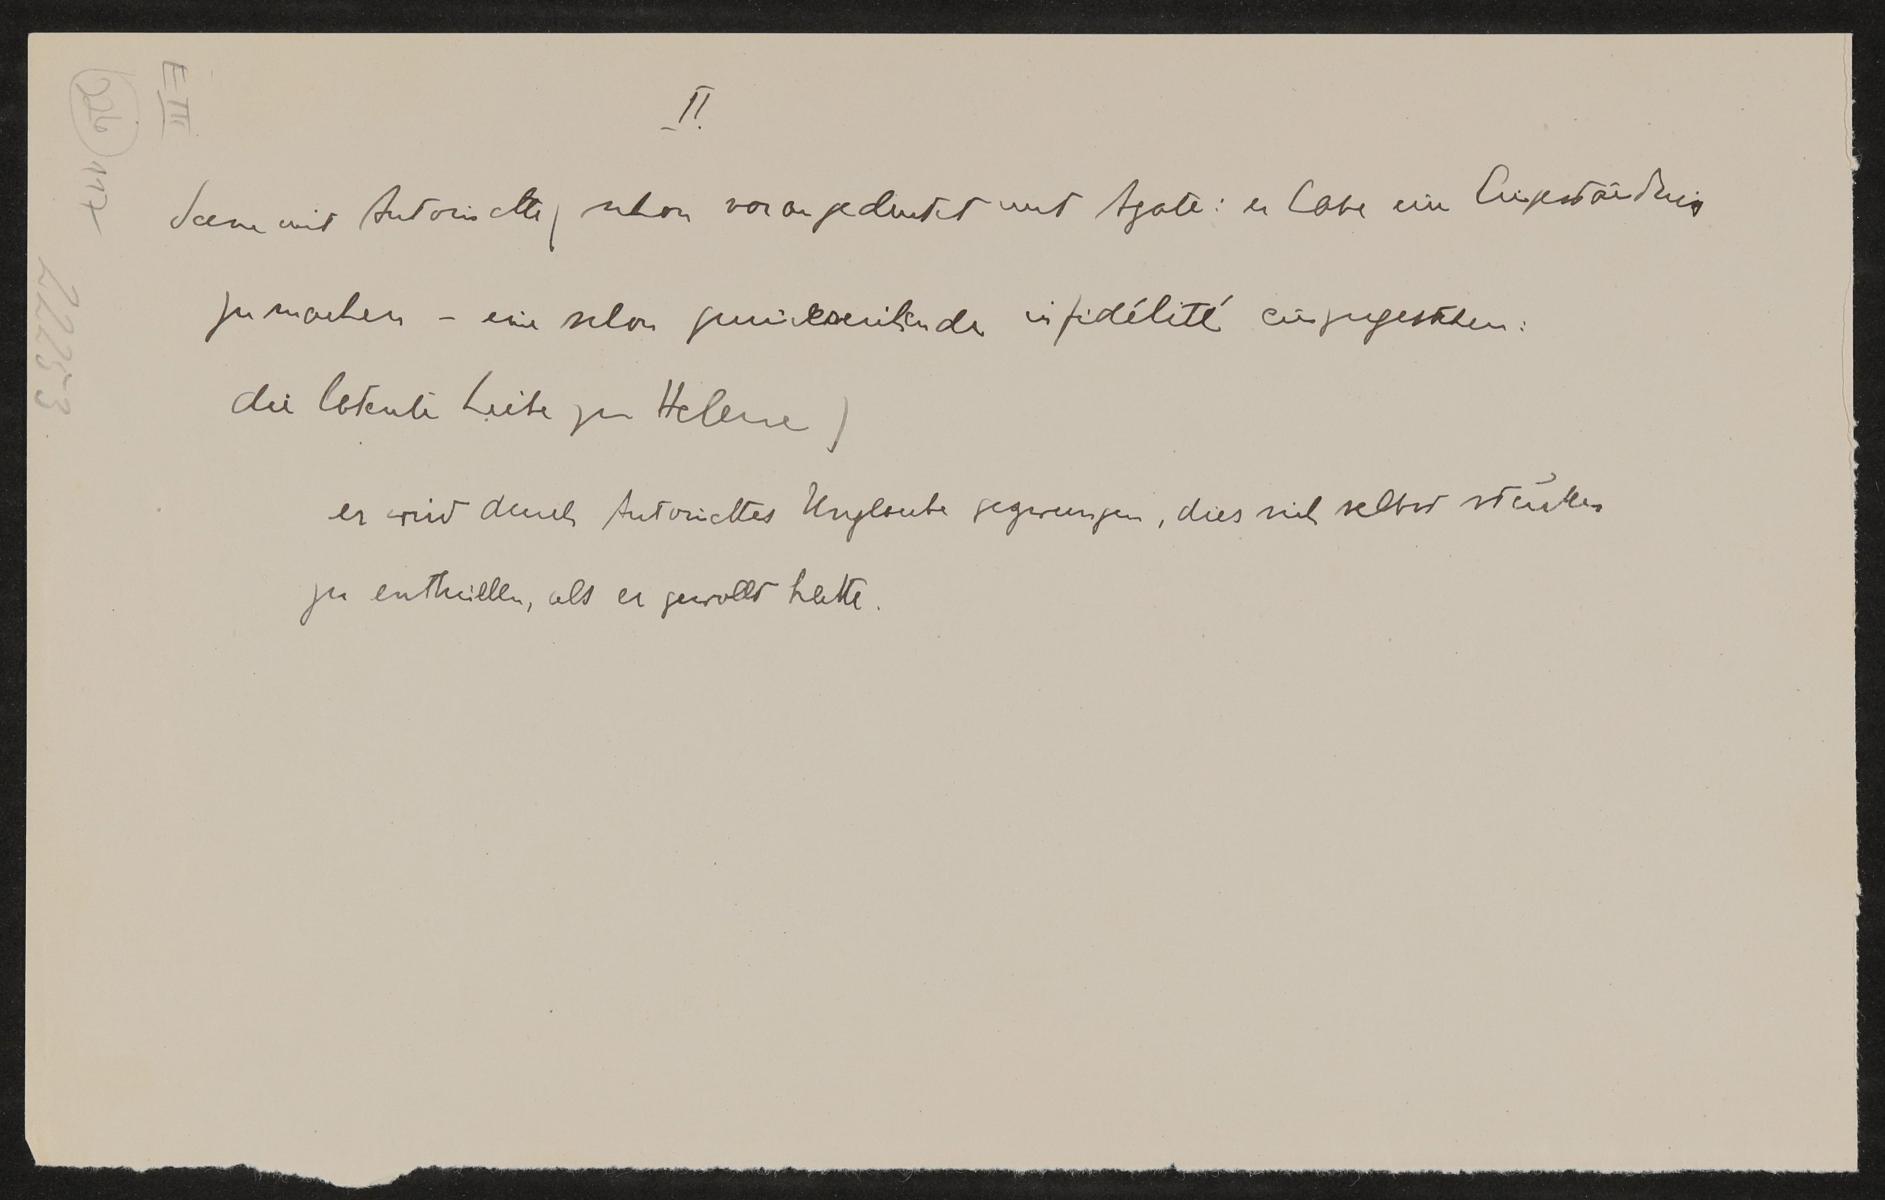 II.
Scene mit Antoinette ( schon vorangedeutet mit Agate: er habe ein Eingeständnis
zu machen – eine schon zurückweichende infidélité einzugestehen:
die latente Liebe zu Helene )
er wird durch Antoinettes Unglaube gezwungen, dies sich selbst stärker
zu enthüllen, als er gewollt hatte.
E III
226
117
22253